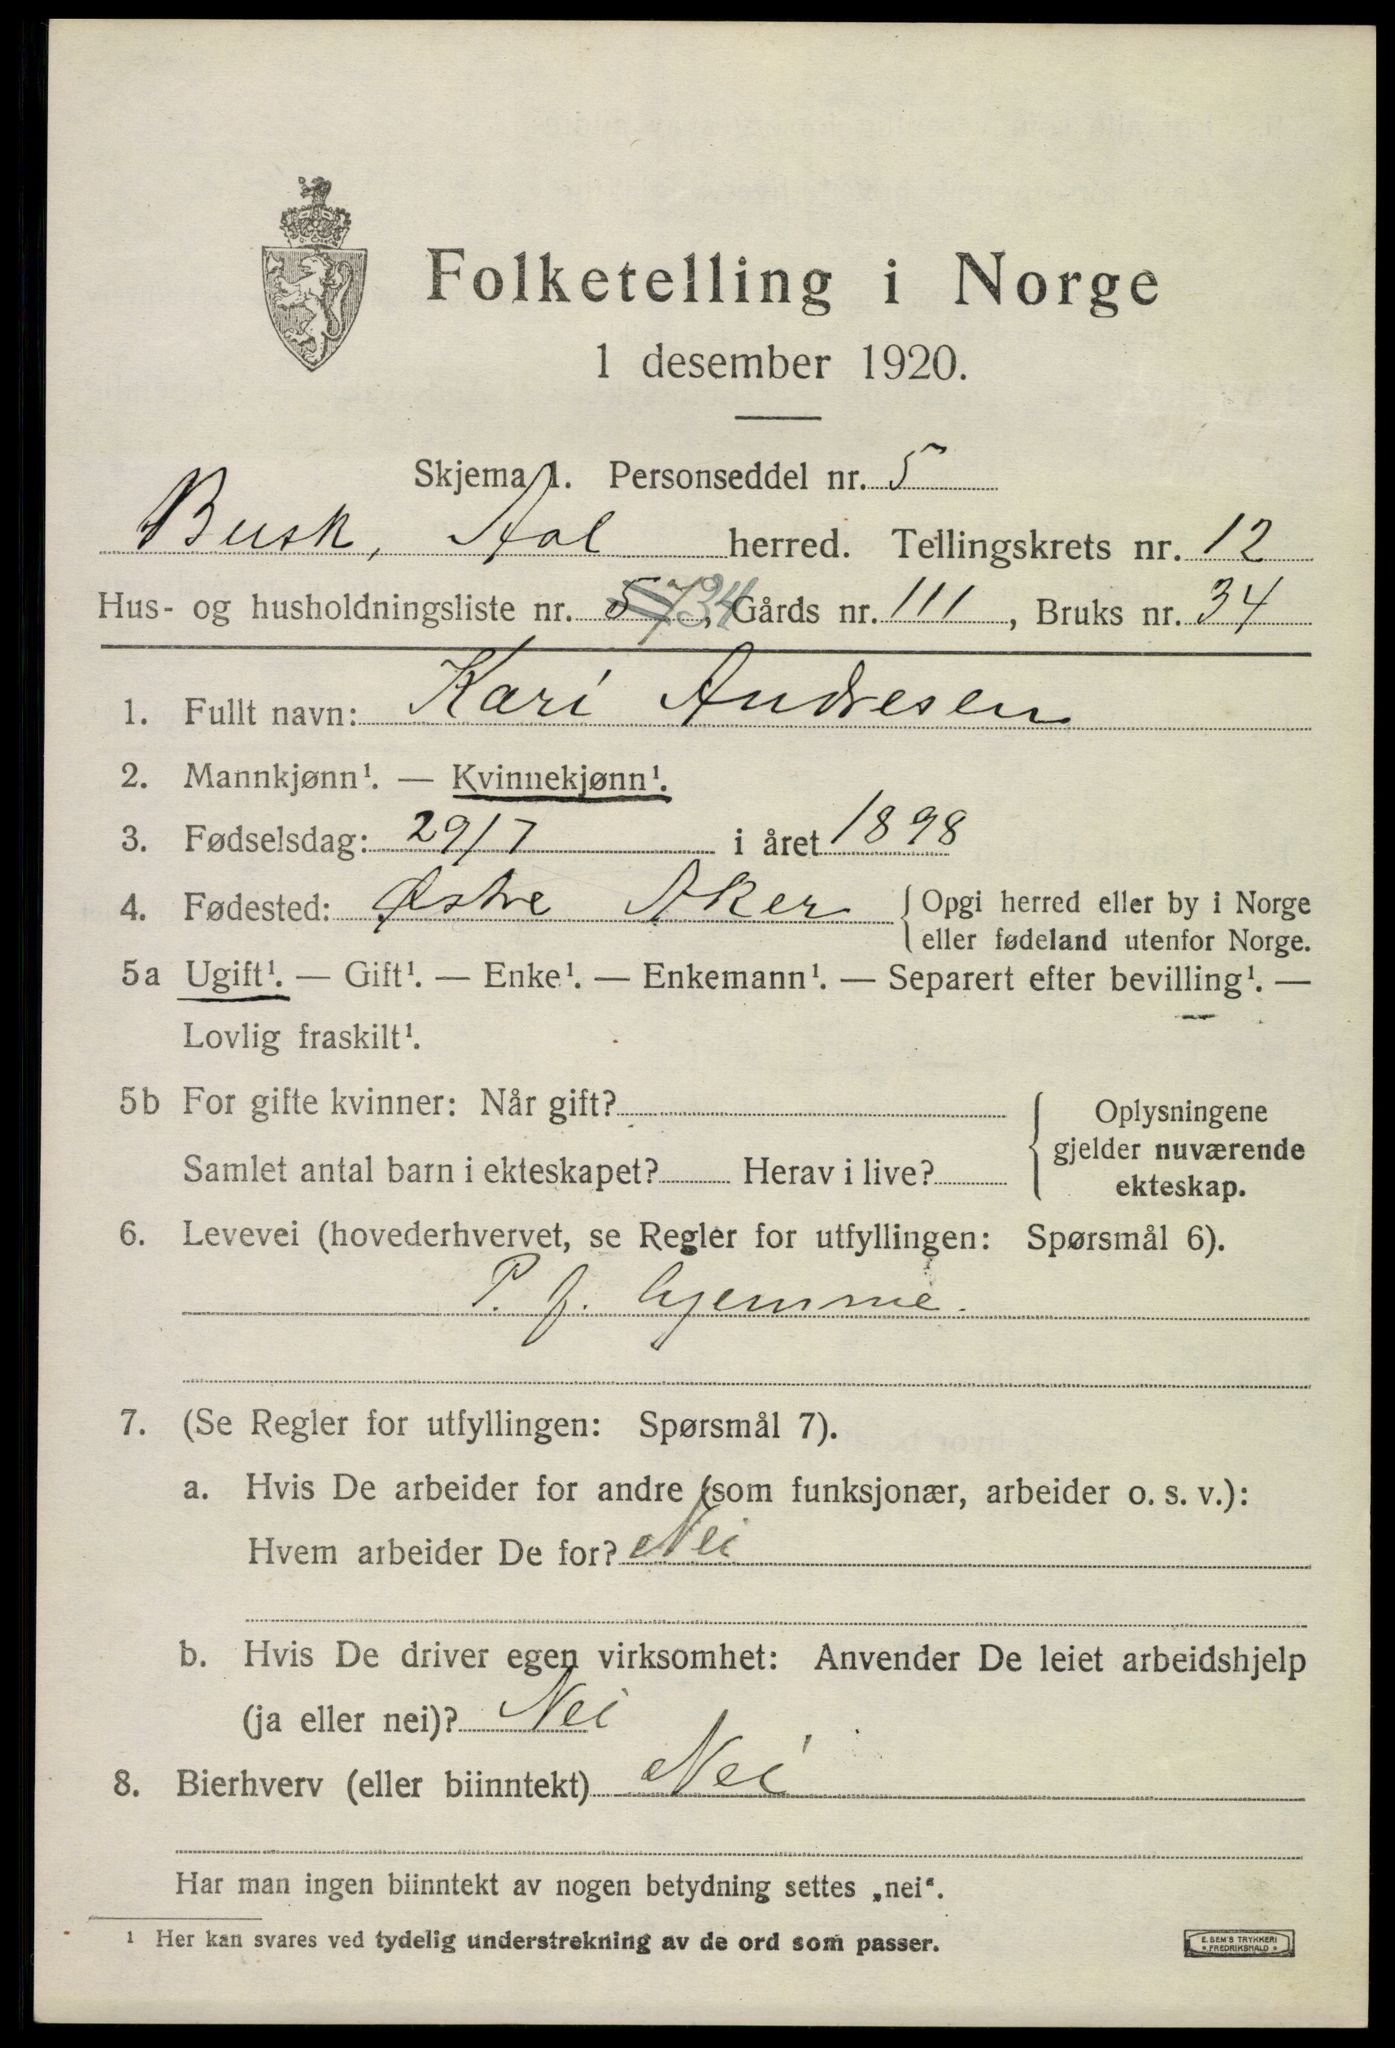 Folketelling i Norge
1 desember 1920.
Skjema 1. Personseddel nr. 5
Busk, Aal herred. Tellingskrets nr. 12
Hus- og husholdningsliste nr. 5 734, Gårds nr. 111, Bruks nr. 34
1. Fullt navn: Kari Andresen
2. Mannkjønn¹. — Kvinnekjønn¹.
3. Fødselsdag: 29/7 i året 1898
4. Fødested: Østre Aker { Opgi herred eller by i Norge
eller fødeland utenfor Norge.
5a Ugift¹. — Gift¹. — Enke¹. — Enkemann¹. — Separert efter bevilling¹. —
Lovlig fraskilt¹.
5b For gifte kvinner: Når gift?
Samlet antal barn i ekteskapet? Herav i live?
{ Oplysningene
gjelder nuværende
ekteskap.
6. Levevei (hovederhvervet, se Regler for utfyllingen: Spørsmål 6).
P. f. hjemme.
7. (Se Regler for utfyllingen: Spørsmål 7).
a. Hvis De arbeider for andre (som funksjonær, arbeider o. s. v.):
Hvem arbeider De for? Nei
b. Hvis De driver egen virksomhet: Anvender De leiet arbeidshjelp
(ja eller nei)? Nei
8. Bierhverv (eller biinntekt) Nei
Har man ingen biinntekt av nogen betydning settes „nei“.
¹ Her kan svares ved tydelig understrekning av de ord som passer.
E. SEM'S TRYKKERI
* FREDRIKSHALD *